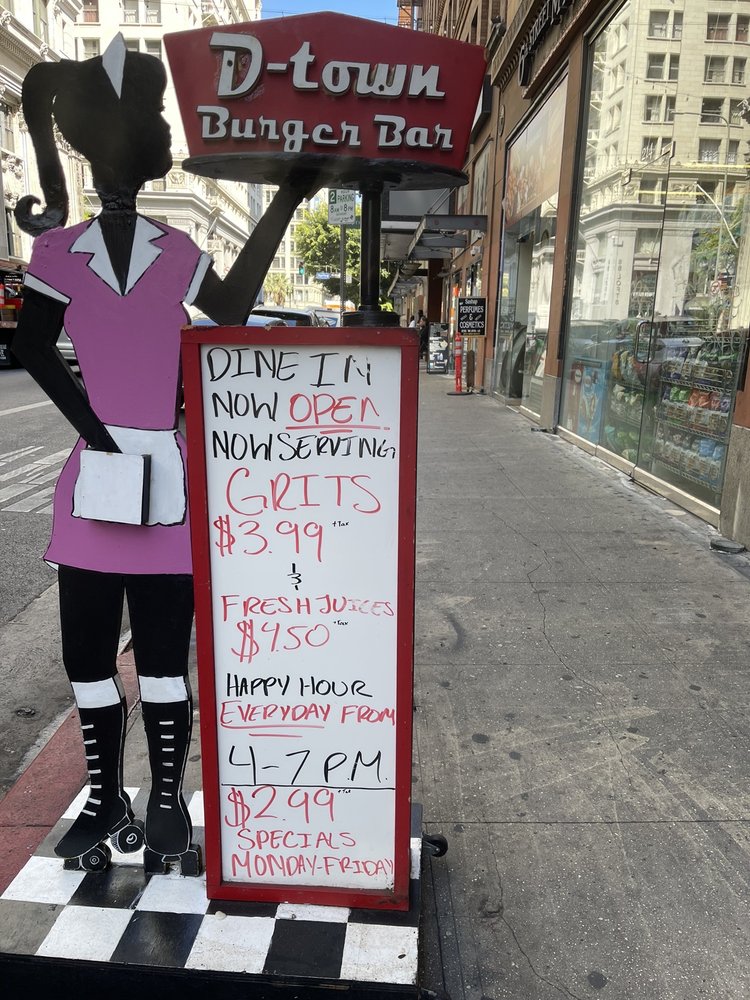 D-town
Burger Bar
2
PARKING
8AM TO 8PM
PERFUMES
&
COSMETICS
DINE IN
NOW OPEN
NOW SERVING
GRITS
$3.99 +Tax
&
FRESH JUICES
$4.50 +Tax
HAPPY HOUR
EVERYDAY FROM
4-7 P.M.
$2.99 +Tax
SPECIALS
MONDAY-FRIDAY